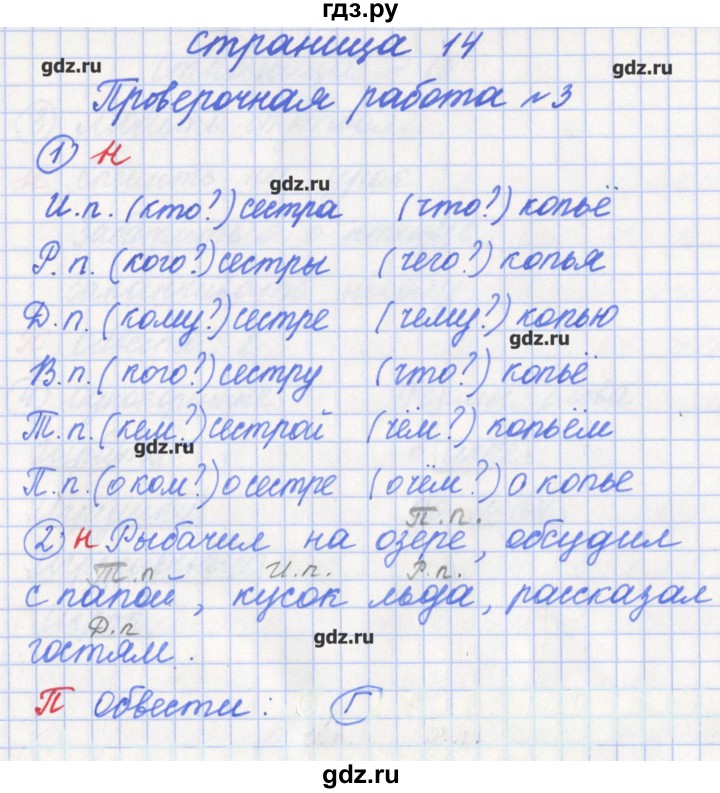 гдз.ру
страница 14
gdz.ru gdz.ru
Проверочная работа №3
1) Н
gdz.ru
И.п. (кто?) сестра (что?) копьё
Р.п. (кого?) сестры (чего?) копья
Д.п. (кому?) сестре (чему?) копью
gdz.ru
В.п. (кого?) сестру (что?) копьё
Т.п. (кем?) сестрой (чём?) копьём
gdz.ru
П.п. (о ком?) о сестре (о чём?) о копье
П.п.
2) Н Рыбачил на озере, обсудил
Т.п И.п. Р.п.
с папой, кусок льда, рассказал
Д.п
гостям.
gdz.ru
П обвести: Г
gdz.ru